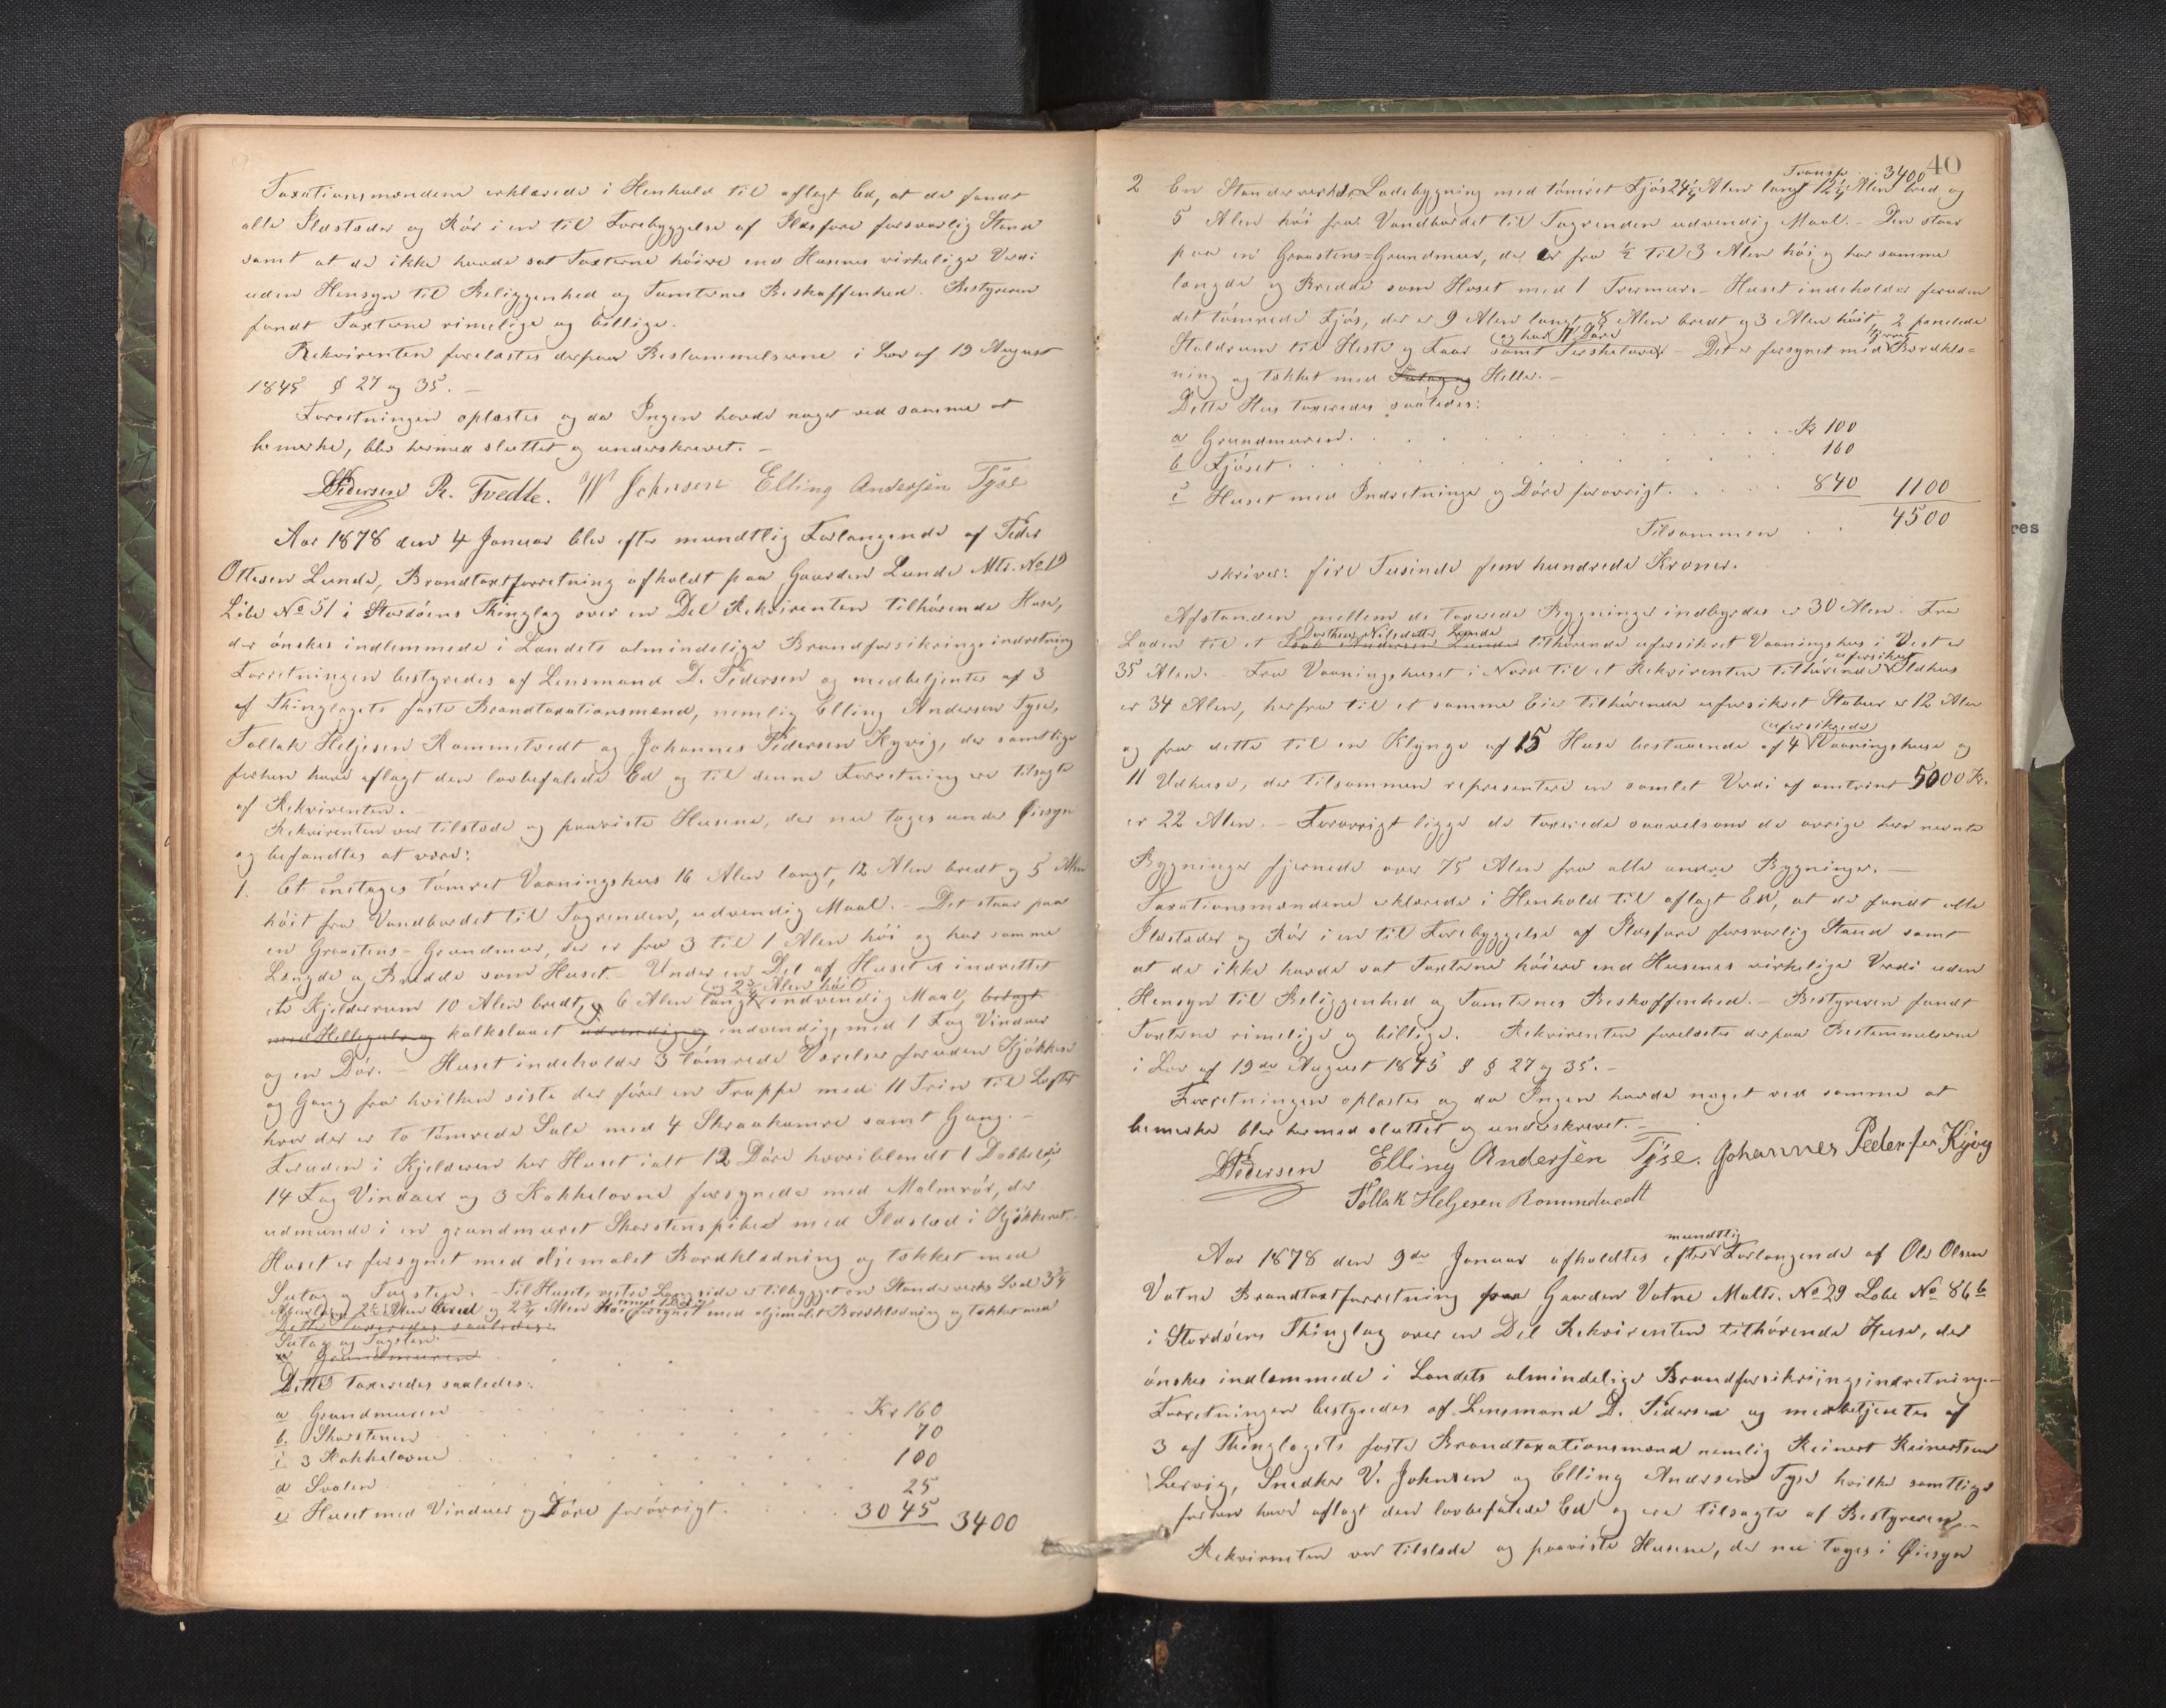 Taxationsmændene erklærede i Henhold til aflagt Ed, at de fandt
alle Ildsteder og Rör i en til Forebyggelse af Ildsfare forsvarlig Stand
samt at de ikke havde sat Taxterne höiere end Husenes virkelige Verdi
uden Hensyn til Beliggenhed og Tomternes Beskaffenhed. Bestyreren
fandt Taxterne rimelige og billige.
Rekvirenten forelæstes derpaa Bestemmelserne i Lov af 19 August
1845 § 27 og 35. –
Forretningen oplæstes og da Ingen havde noget ved samme at
bemerke, blev hermed sluttet og underskrevet. –
DPedersen R. Tvedte. W Johnsen Elling Andersen Tyse
Aar 1878 den 4 Januar blev efter mundtlig Forlangende af Peder
Ottesen Lunde, Brandtaxtforretning afholdt paa Gaarden Lunde Mts. No 19
Löbe No 51 i Stordöens Thinglag over en Del Rekvirenten tilhörende Huse,
der önskes indlemmede i Landets almindelige Brandforsikringsindretning
Forretningen bestyredes af Lensmand D. Pedersen og medbetjentes af 3
af Thinglagets faste Brandtaxationsmænd, nemlig Elling Andersen Tyse,
Tollak Heljesen Rommetvedt og Johannes Pedersen Kyvig, der samtlige
forhen have aflagt den lovbefalede Ed og til denne Forretning ere tilsagte
af Rekvirenten. –
Rekvirenten var tilstede og paaviste Husene, der nu toges under Öiesyn
og befandtes at være:
1. Et enetages tömret Vaaningshus 16 Alen langt, 12 Alen bredt og 5 Alen
höit fra Vandbordet til Tagrenden, udvendig Maal. – Det staar paa
en Graastens-Grundmur, der er fra 3 til 1 Alen höi og har samme
Længde og Bredde som Huset. – Under en Del af Huset er indrettet
og 2 3/4 Alen höit
et Kjelderrum 10 Alen bredt, og 6 Alen langt indvendig Maal, belagt
med Hellegulv og kalkslaaet udvendig og indvendig, med 1 Fag Vinduer
og en Dör. – Huset indeholder 3 tömrede Værelser foruden Kjökken
og Gang fra hvilken siste der förer en Trappe med 11 Trin til Loftet
hvor der er to tömrede Sale med 4 Skraakamre samt Gang. –
Foruden i Kjelderen har Huset ialt 12 Döre hvoriblandt 1 Dobbeldör,
14 Fag Vinduer og 3 Kakkelovne forsynede med Malmrör, der
udmunde i en grundmuret Skorstenspibe med Ildsted i Kjökkenet. –
Huset er forsynet med oliemalet Bordklædning og tækket med
Sutag og Tagsten. – Til Husets vestre Langside er tilbygget en Standerverks Sval 3 3/4
Alen lang 2 1/2 Alen bred og 2 3/4 Alen höi forsynet med oljemalet Bordklædning og tækket med
med 1 Dör
Dette taxeredes saaledes:
Sutag og Tagsten. –
a Grundmuren
Dette taxeredes saaledes:
a Grundmuren Kr 160
b. Skorstenen 70
c 3 Kakkelovne 100
d Svalen 25
e Huset med Vinduer og Döre forövrigt. 3045 3400
40
Transp. . . 3400
2 En Standerverks Ladebygning med tömret Fjös 24 1/4 Alen langt 12 1/4 Alen bred og
5 Alen höi fra Vandbordet til Tagrenden udvendig Maal. – Den staar
paa en Graastens-Grundmur, der er fra 1/2 til 3 Alen höi, og har samme
længde og Bredde som Huset med 1 Tvermur. – Huset indeholder foruden
det tömrede Fjös, der er 9 Alen langt, 8 Alen bredt og 3 Alen höit, 2 panelede
og har 11 Döre
Staldrum til Heste og Faar samt Tærskelaave – Det er forsynet med Bordklæ=
ning og tækket med Sutag og Heller. –
Dette Hus taxeredes saaledes:
a Grundmuren. Kr 100
b Fjöset. 160
c Huset med Indretninger og Döre forövrigt. 840 1100
Tilsammen . . 4500
skriver: fire Tusinde fem hundrede Kroner.
Afstanden mellem de taxerede Bygninger indbyrdes er 30 Alen. Fra
Dorthea Nilsdatter Lunde
Laden til et Isak Andersen Lunde tilhörende uforsikret Vaaningshus i Vest er
uforsikret
35 Alen. – Fra Vaaningshuset i Nord til et Rekvirenten tilhörende Ildhus
er 34 Alen, herfra til et samme Eier tilhörende uforsikret Stabur er 12 Alen
uforsikrede
og fra dette til en Klynge af 15 Huse bestaaende af 4 Vaaningshuse og
11 Udhuse, der tilsammen representere en samlet Verdi af omtrent 5000 Kr.
er 22 Alen. – Forövrigt ligge de taxerede saavelsom de övrige her nevnte
Bygninger fjernede over 75 Alen fra alle andre Bygninger. –
Taxationsmændene erklærede i Henhold til aflagt Ed, at de fandt alle
Ildsteder og Rör i en til Forebyggelse af Ildsfare forsvarlig Stand samt
at de ikke havde sat Taxterne höiere end Husenes virkelige Verdi uden
Hensyn til Beliggenhed og Tomternes Beskaffenhed. – Bestyreren fandt
Taxterne rimelige og billige. Rekvirenten forelæstes derpaa Bestemmelserne
i Lov af 19de August 1845 § § 27 og 35. –
Forretningen oplæstes og da Ingen havde noget ved samme at
bemerke blev hermed sluttet og underskrevet. –
DPedersen Elling Andersen Tyse. Johannes Pedersen Kyvig
Tollak Heljesen Rommetvedt
mundtlig
Aar 1878 den 9de Januar afholdtes efter Forlangende af Ole Olsen
Vatne Brandtaxtforretning paa Gaarden Vatne Matts. No 29 Löbe No 86 b
i Stordöens Thinglag over en Del Rekvirenten tilhörende Huse, der
önskes indlemmede i Landets almindelige Brandforsikringsindretning. –
Forretningen bestyredes af Lensmand D. Pedersen og medbetjentes af
3 af Thinglagets faste Brandtaxationsmænd nemlig Reinert Reinertsen
Lervig, Snedker V. Johnsen og Elling Andersen Tyse hvilke samtlige
forhen have aflagt den lovbefalede Ed og ere tilsagte af Bestyreren. –
Rekvirenten var tilstede og paaviste Husene, der nu toges i Öiesyn